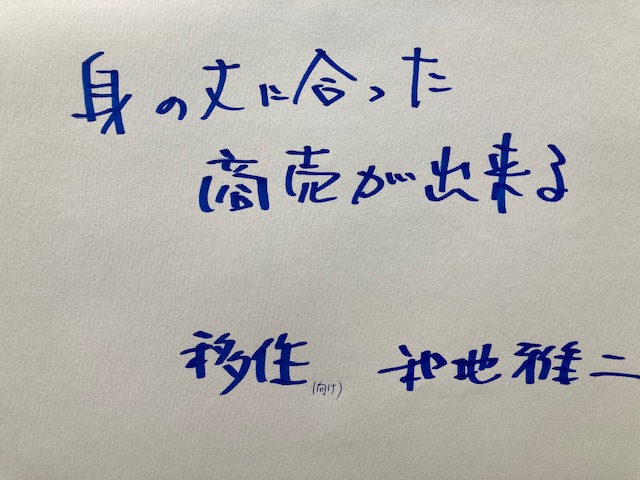 身の丈に合った
商売が出来る
移住(向け) 和地雅二